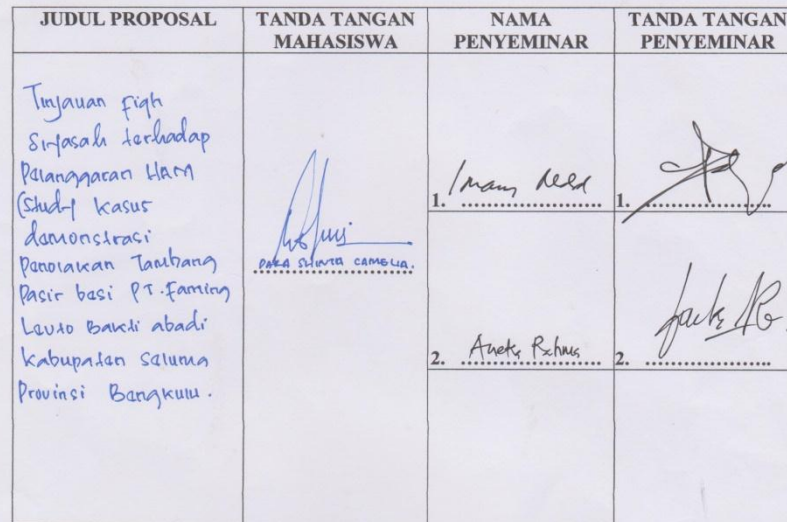 JUDUL PROPOSAL
TANDA TANGAN
MAHASISWA
NAMA
PENYEMINAR
TANDA TANGAN
PENYEMINAR
Tinjauan fiqh
Siyasah terhadap
Pelanggaran HAM
(Study Kasus
demonstrasi
Penolakan Tambang
Pasir besi PT. Faming
Levto Bakti abadi
Kabupaten Seluma
Provinsi Bengkulu.
CAMELIA.
1. Imam
1.
2. 
2.